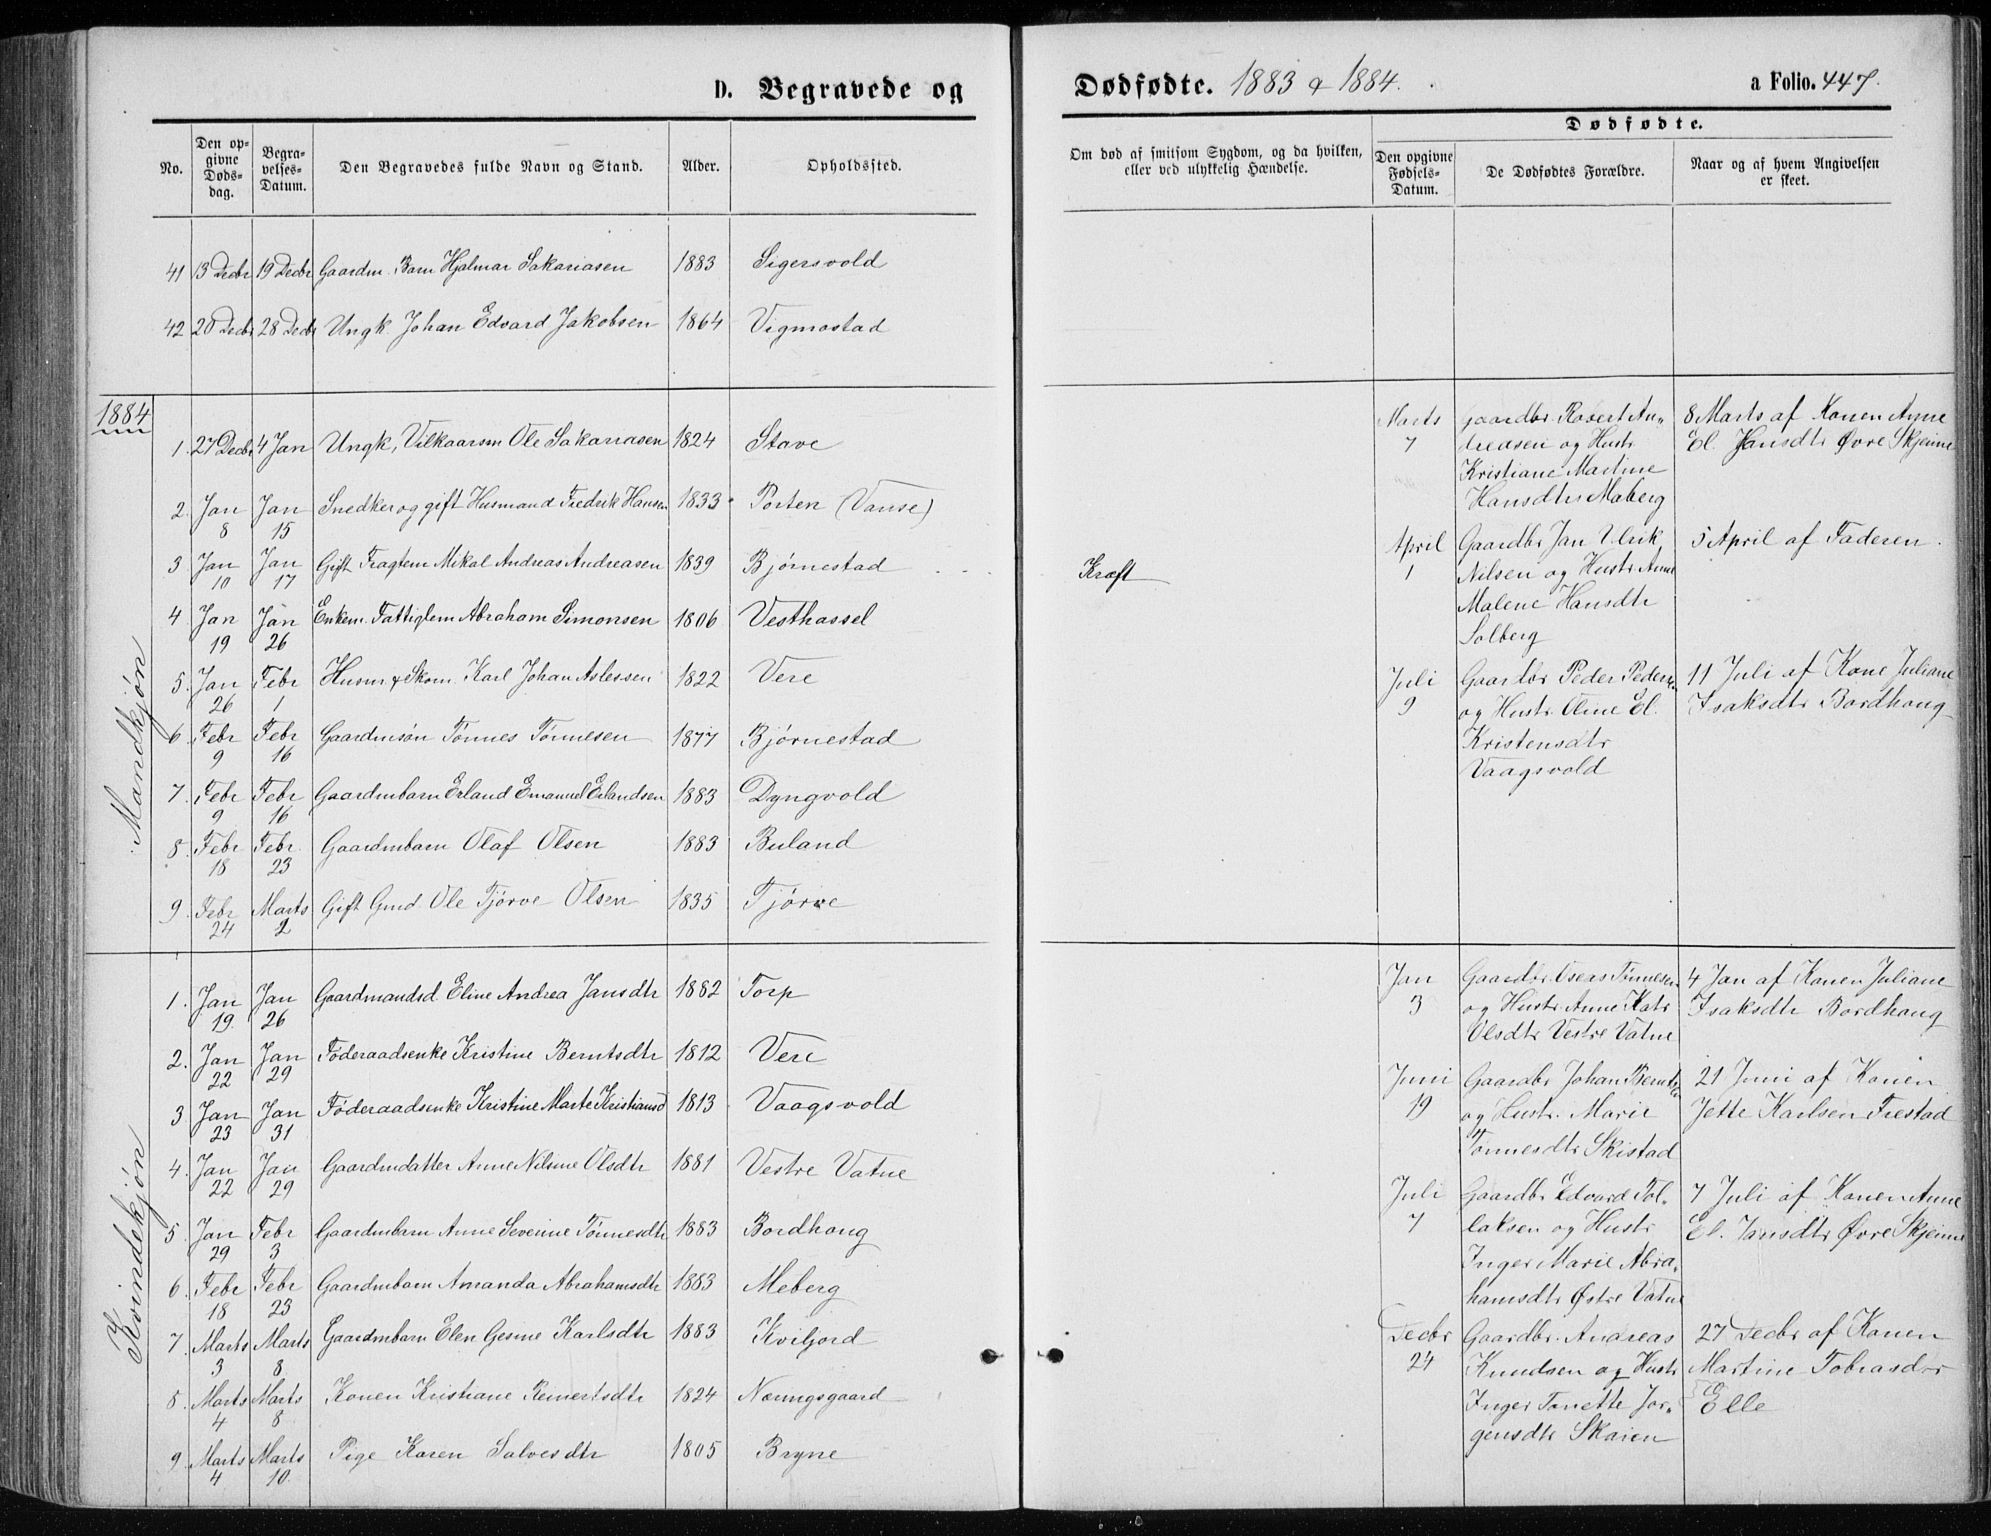 D. Begravede og Dødfødte. 1883 & 1884. a Folio. 447.
No.
Den op-
givne
Døds-
dag.
Begra-
velses-
Datum.
Den Begravedes fulde Navn og Stand.
Alder.
Opholdssted.
Om død af smitsom Sygdom, og da hvilken,
eller ved ulykkelig Hændelse.
Dødfødte.
Den opgivne
Fødsels-
Datum.
De Dødfødtes Forældre.
Naar og af hvem Angivelsen
er skeet.
41 13 Decbr 19 Decbr Gaardm. Barn Hjalmar Sakariasen 1883 Sigersvold
42 20 Decbr 28 Decbr Ungk. Johan Edvard Jakobsen 1864 Vigmostad
1884
Mandkjøn
1. 27 Decbr 4 Jan Ungk, Vilkaarsm Ole Sakariasen 1824 Stave
2. Jan 8 Jan 15 Snedker og gift Husmand Fredrik Hansen 1833 Porten (Vanse)
3 Jan 10 Jan 17 Gift Fragtem Mikal Andreas Andreasen 1839 Bjørnestad Kræft
4 Jan 19 Jan 26 Enkem. Fattiglem Abraham Simonsen 1806 Vesthassel
5. Jan 26 Febr 1 Husm & Skom. Karl Johan Aslessen 1822 Vere
6 Febr 9 Febr 16 Gaardmsøn Tønnes Tønnesen 1877 Bjørnestad
7. Febr 9 Febr 16 Gaardmbarn Erland Emanuel Erlandsen 1883 Dyngvold
8. Febr 18 Febr 23 Gaardmbarn Olaf Olsen 1883 Buland
9. Febr 24 Marts 2 Gift Gmd. Ole Tjørve Olsen 1835 Tjørve
Marts
7
Gaardbr Robert An-
dreasen og Hustr
Kristiane Martine
Hansdtr Maberg
8 Marts af Konen Anne
El. Jansdtr Øvre Skjeime
April
1
Gaardbr Jan Ulrik
Nilsen og Hustr Anne
Malene Hansdtr
Solberg
5 April af Faderen.
Juli
9
Gaardbr Peder Pedersen
og Hustr. Oline El.
Kristensdtr
Vaagsvold
11 Juli af Kone Juliane
Isaksdtr Bordhoug
Kvindekjøn
1. Jan 19. Jan 26 Gaardmandsd Eline Andrea Jansdtr 1882 Torp
2. Jan 22 Jan 29 Føderaadsenke Kristine Berntsdtr 1812 Vere
3 Jan 23 Jan 31 Føderaadsenke Kristine Marte Kristiansd 1813 Vaagsvold
4. Jan 22 Jan 29 Gaardmdatter Anne Nilsine Olsdtr 1881 Vestre Vatne
5. Jan 29 Febr 3 Gaardmbarn Anne Severine Tønnesdtr 1883 Bordhoug
6. Febr 18 Febr 23 Gaardmbarn Amanda Abrahamsdtr 1883 Meberg
7. Marts 3 Marts 8 Gaardmbarn Elen Gesine Karlsdtr 1883 Kviljord
8. Marts 4 Marts 8 Konen Kristiane Reinertsdtr 1824 Nøringsgaard
9. Marts 4 Marts 10. Pige Karen Salvesdtr 1805 Bryne
Jan
3
Gaardbr. Oseas Tønnesen
og Hustr. Anne Katr
Olsdtr Vestre Vatne
4 Jan af Konen Juliane
Isaksdtr Bordhoug
Juni
19
Gaardbr Johan Berntsen
og Hustr. Marie
Tønnesdtr Skistad
21 Juni af Konen
Jette Karlsen Frestad
Juli
7
Gaardbr Edvard Tol-
laksen og Hustr
Inger Marie Abra-
hamsdtr Østre Vatne
7 Juli af Konen Anne
El. Jansdtr Øvre Skjeime
Decbr
24
Gaardbr. Andreas
Knudsen og Hustr
Inger Tonette Jør-
gensdtr Skaien
27 Decbr af Konen
Martine Tobiasdtr
Elle